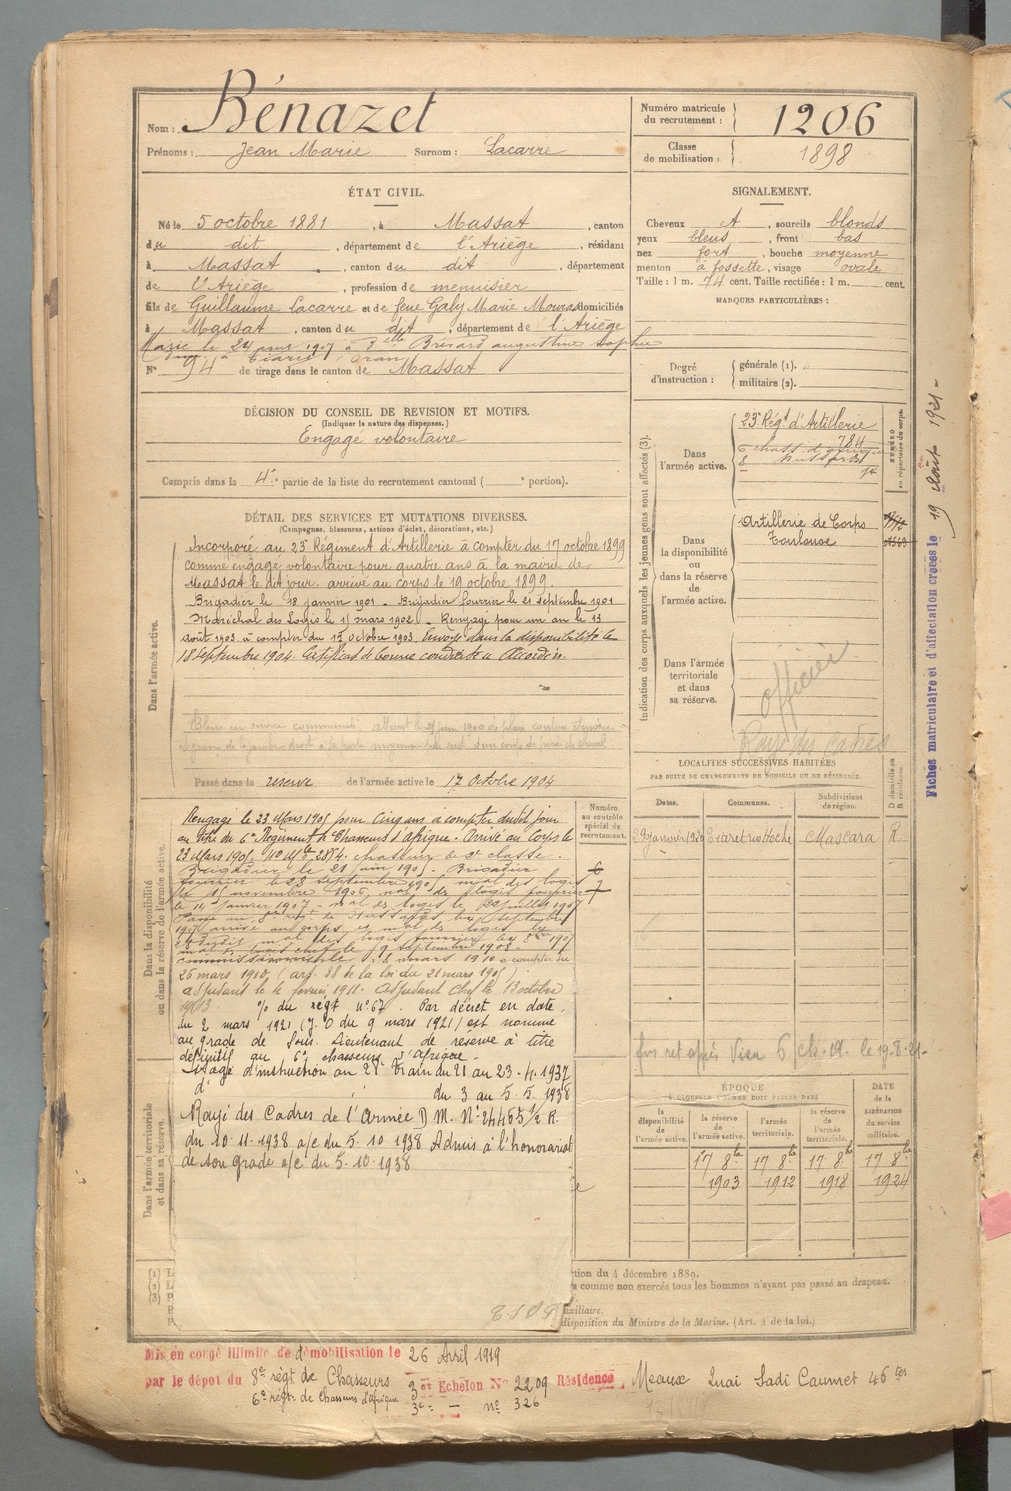 Nom : Bénazet
Prénoms : Jean Marie Surnom : Lacarre
Numéro matricule du recrutement : 1206
Classe de mobilisation : 1898
ÉTAT CIVIL.
Né le 5 octobre 1881, à Massat, canton
du dit, département de l'Ariège, résidant
à Massat, canton du dit, département
de l'Ariège, profession de menuisier
fils de Guillaume Lacarre et de feue Galy Marie domiciliés
à Massat, canton du dit, département de l'Ariège
Marié le 24 1907 à Dlle Brévard augustine Sophie
à Tiaret Oran
N° 94 de tirage dans le canton de Massat
SIGNALEMENT.
Cheveux A, sourcils blonds
yeux bleus, front bas
nez fort, bouche moyenne
menton à fossette, visage ovale
Taille : 1 m. 74 cent. Taille rectifiée : 1 m. cent.
MARQUES PARTICULIÈRES :
Degré d'instruction : générale (1).
militaire (2).
DÉCISION DU CONSEIL DE REVISION ET MOTIFS.
(Indiquer la nature des dispenses.)
Engagé volontaire
Compris dans la 4e partie de la liste du recrutement cantonal ( e portion).
DÉTAIL DES SERVICES ET MUTATIONS DIVERSES.
(Campagnes, blessures, actions d'éclat, décorations, etc.)
Dans l'armée active.
Incorporé au 23e Régiment d'Artillerie à compter du 17 octobre 1899
comme engagé volontaire pour quatre ans à la mairie de
Massat le dit jour, arrivé au corps le 19 octobre 1899.
Brigadier le 18 janvier 1901 - Brigadier fourrier le 21 septembre 1901
Maréchal des Logis le 1 mars 1902 - Rengagé pour un an le 13
août 1903 à compter du 17 octobre 1903. Envoyé dans la disponibilité le
18 septembre 1904. Certificat de bonne conduite Accordé.
Passé dans la réserve de l'armée active le 17 octobre 1904
Indication des corps auxquels les jeunes gens sont affectés (3).
NUMÉRO au répertoire du corps.
Dans l'armée active.
23e Régt d'Artillerie
784
6 chass. d'afrique
8 hussards
Dans la disponibilité ou dans la réserve de l'armée active.
Artillerie de Corps
Toulouse
Dans l'armée territoriale et dans sa réserve.
officier
Rayé des cadres
Fiches matriculaire et d'affectation créées le 19 Août 1921 -
LOCALITÉS SUCCESSIVES HABITÉES
PAR SUITE DE CHANGEMENTS DE DOMICILE OU DE RÉSIDENCE.
D domicile ou R résidence.
Dates. Communes. Subdivisions de région.
janvier 1920 Tiaret rue Hoche Mascara R.
Numéro au contrôle spécial de recrutement.
Dans la disponibilité ou dans la réserve de l'armée active.
Rengagé le 23 Mars 1905 pour cinq ans à compter dudit jour
au titre du 6e Régiment de Chasseurs d'Afrique. Arrivé au Corps le
23 Mars 1905. chasseur de 2e classe.
Brigadier le 21 juin 1905. Brigadier
fourrier le 28 septembre 1905 mal des logis
le 1 novembre 1906, mal des logis fourrier
le 14 janvier 1907 - mal des logis le juillet 1907
Passé au 8e régt de Hussards le septembre
1907 arrivé au corps mal des logis
mal des logis fourrier le 8bre 1907
mal des logis chef le 9 septembre 1908.
8 mars 1910 à compter du
26 mars 1910 (art. 38 de la loi du 21 mars 1905)
adjudant le février 1911. adjudant chef le 13 octobre
1913 % du régt n° 67. Par décret en date
du 2 mars 1921 (J. O du 9 mars 1921) est nommé
au grade de Sous. Lieutenant de réserve à titre
définitif au 6e chasseurs d'afrique -
Stage d'instruction au 28e Train du 21 au 23-4-1937
d° du 3 au 5.5.1938
Rayé des Cadres de l'Armée D M. N° 24465 1/2 R.
du 10-11-1938 a/c du 5-10-1938 Admis à l'honorariat
de son grade a/c du 5-10-1938
Dans l'armée territoriale et dans sa réserve.
le 19-8-21-
ÉPOQUE
À LAQUELLE L'HOMME DOIT PASSER DANS
DATE de la LIBÉRATION du service militaire.
la disponibilité de l'armée active. la réserve de l'armée active. l'armée territoriale. la réserve de l'armée territoriale.
17 8bre 1903 17 8bre 1912 17 8bre 1918 17 8bre 1924
(1)
(2)
(3)
tion du 4 décembre 1889.
comme non exercés tous les hommes n'ayant pas passé au drapeau.
uxiliaire.
disposition du Ministre de la Marine. (Art. 4 de la loi.)
Mis en congé illimité de démobilisation le 26 Avril 1919
par le dépôt du 8e régt de Chasseurs 3er Echelon N° 2209 Résidence Meaux Quai Sadi Carnot 46 ter
6e régt de Chasseurs d'afrique 3e - n° 326